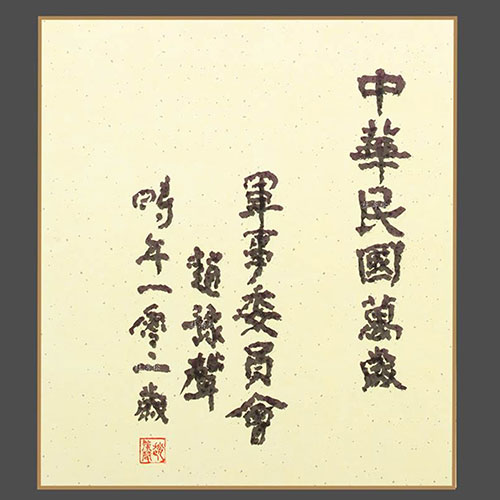 中華民國萬歲
軍事委員會
趙豫聲
時年一零二歲